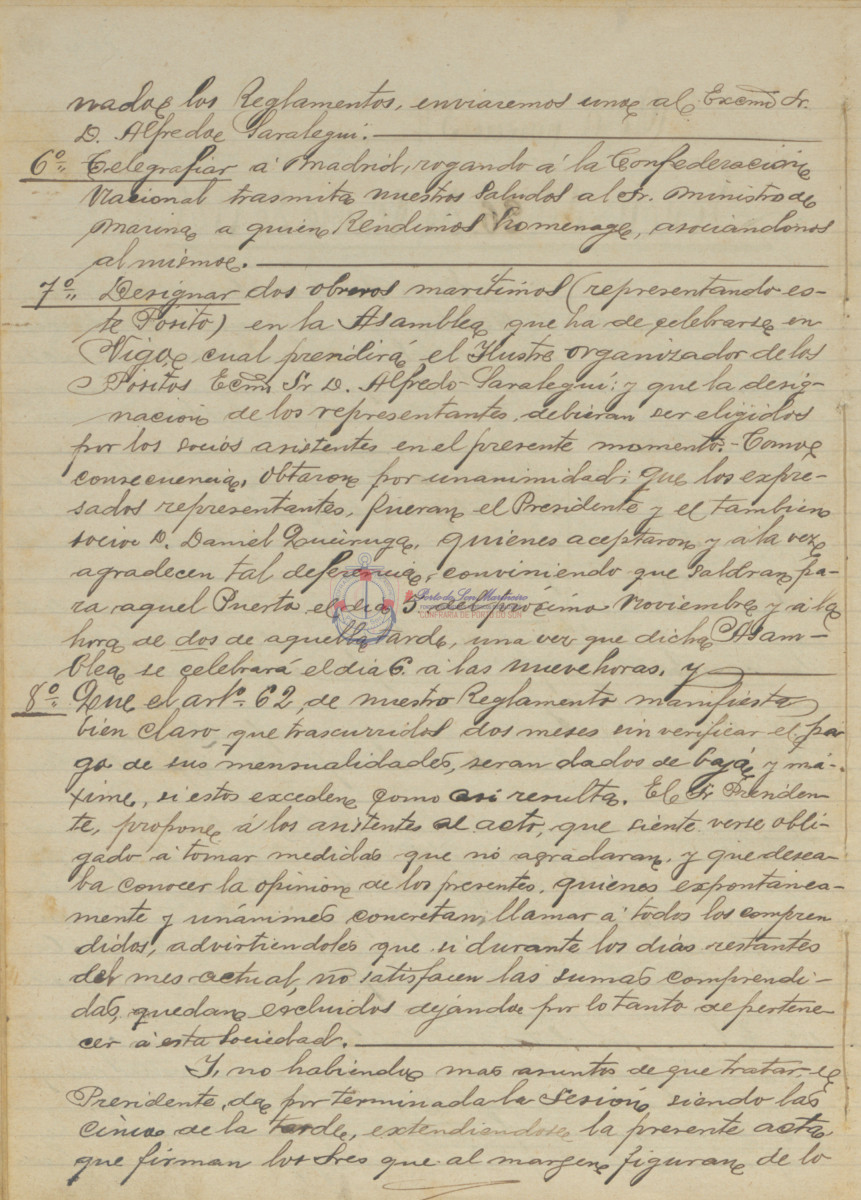 nados los Reglamentos, enviaremos uno al Excmº Sr.
D. Alfredo Saralegui.
6º" Telegrafiar á Madrid, rogando á la Confederación
Nacional trasmita nuestros saludos al Sr. Ministro de
Marina a quien Rendimos homenage, asociándonos
al mismo.
7º" Designar dos obreros marítimos (representando es-
te Pósito) en la Asamblea que ha de celebrarse en
Vigo, cual presidirá el Ilustre organizador de los
Pósitos Ecmº Sr D. Alfredo Saralegui: y que la desig-
nación de los representantes, debieran ser eligidos
por los socios asistentes en el presente momento.- Como
consecuencia, obtaron por unanimidad; que los expre-
sados representantes, fueran el Presidente y el tambien
socio D. Daniel Queiruga, quienes aceptaron y á la vez
agradecen tal deferencia, conviniendo que saldran pa-
ra aquel Puerto el dia 5 del próximo Noviembre y á la
hora de dos de aquella tarde, una vez que dicha Asam-
blea se celebrará el dia 6 a las nueve horas, y
8º" Que el artº. 62 de nuestro Reglamento manifiesta
bien claro, que trascurridos dos meses sin verificar el pa-
go de sus mensualidades, seran dados de baja, y má-
xime, si estos exceden como asi resulta. El Sr Presiden-
te, propone á los asistentes al acto, que siente verse obli-
gado á tomar medidas que no agradaran, y que desea-
ba conocer la opinion de los presentes, quienes expontanea-
mente y unánimes concretan, llamar á todos los compren
didos, advirtiendoles que si durante los dias restantes
del mes actual, no satisfacen las sumas comprendi-
das, quedan excluidos dejando por lo tanto de pertene-
cer á esta Sociedad.
Y, no habiendo mas asuntos de que tratar, el
Presidente, da por terminada la Sesión, siendo las
cinco de la tarde, extendiendose la presente acta
que firman los Sres que al margen figuran, de lo
Porto do Son Marineiro
CONFRARÍA DE PORTO DO SON